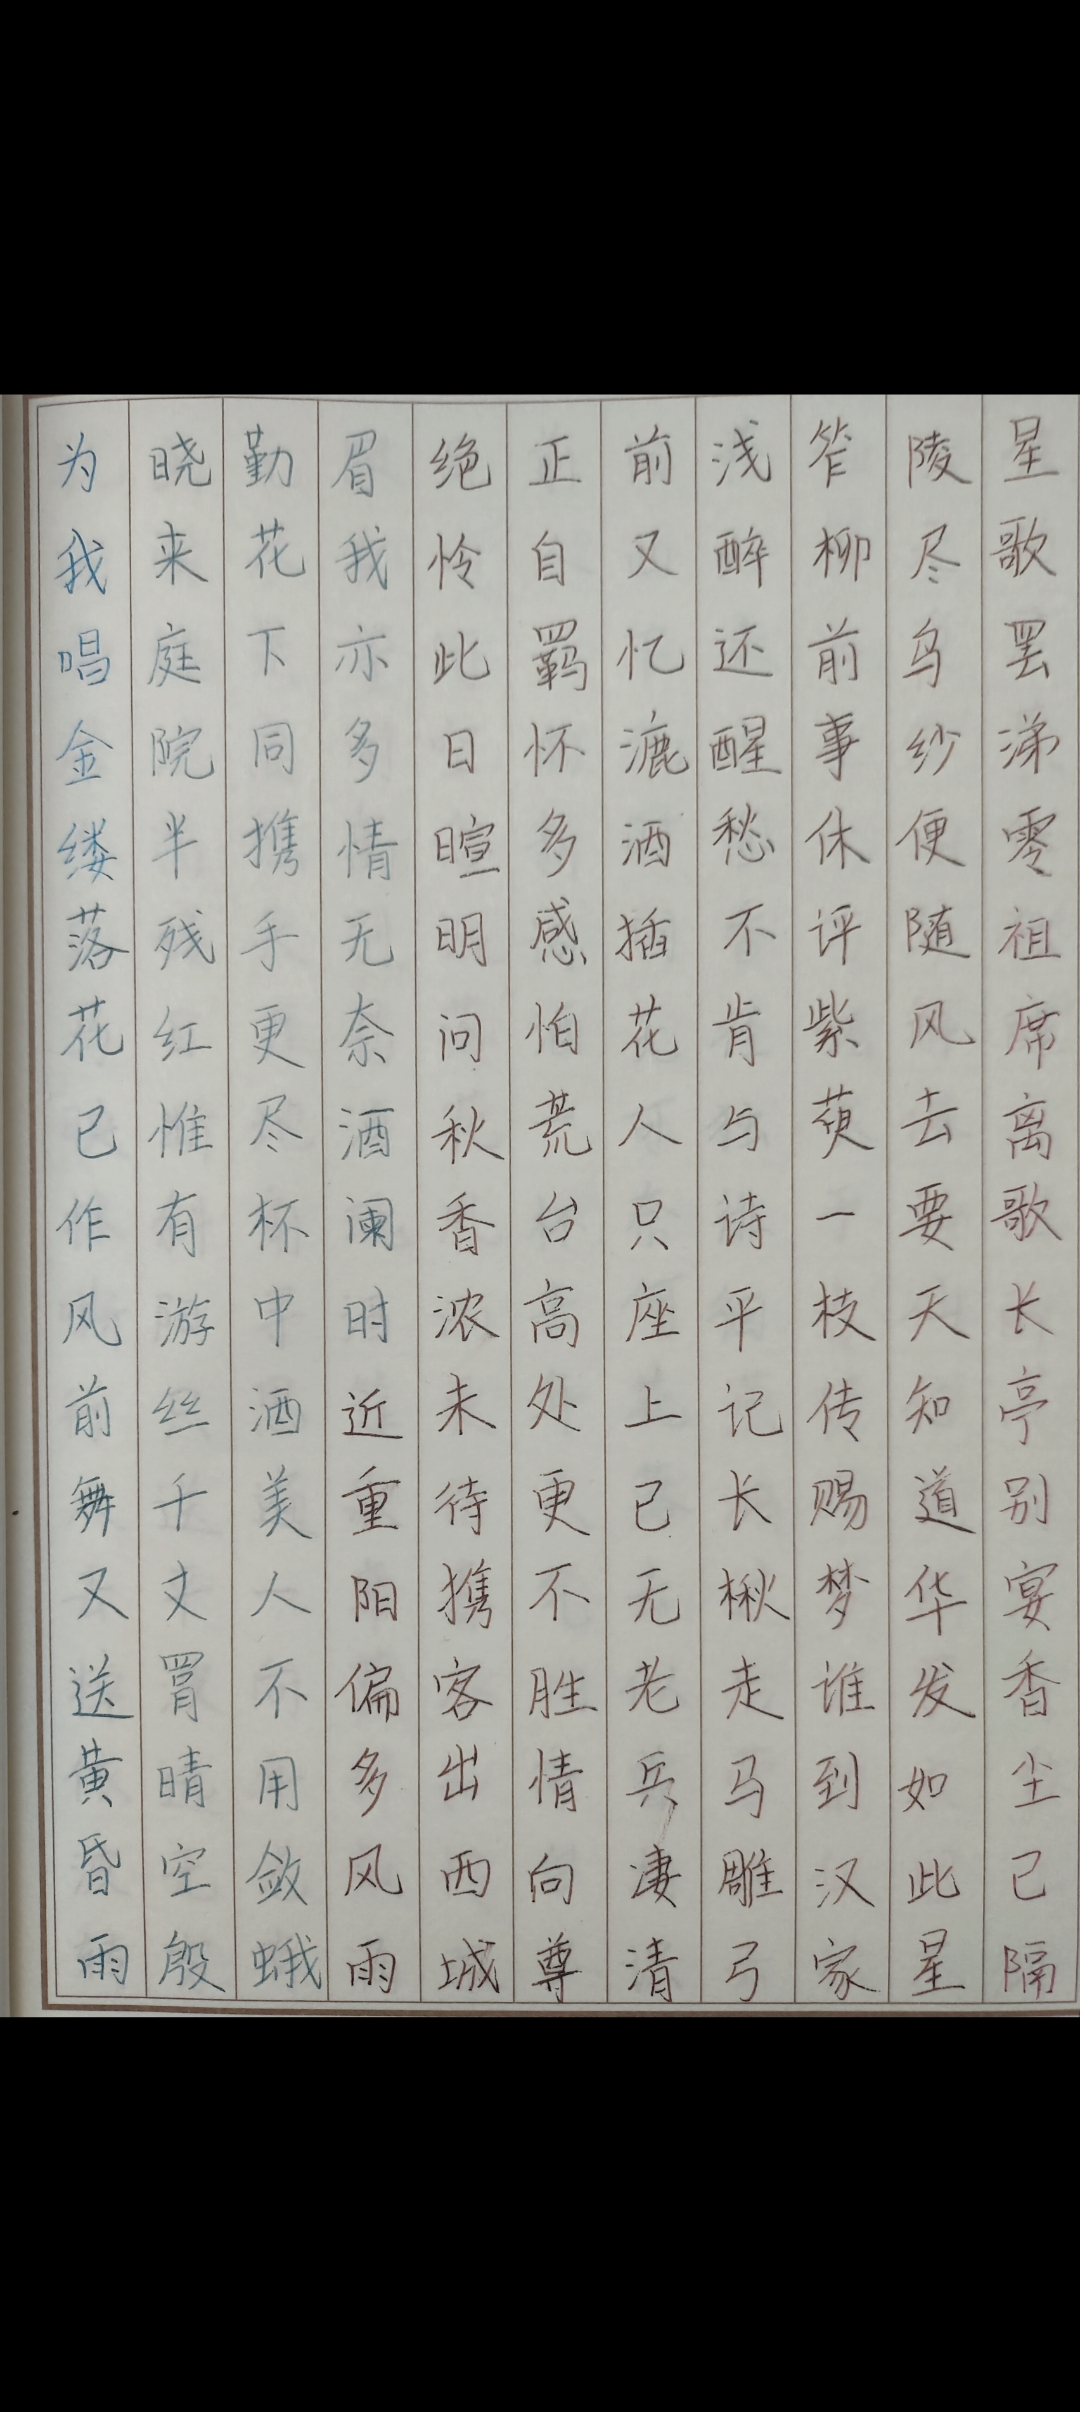 星歌罢涕零祖席离歌长亭别宴香尘已隔
陵尽乌纱便随风去要天知道华发如此星
笮柳前事休评紫萸一枝传赐梦谁到汉家
浅醉还醒愁不肯与诗平记长楸走马雕弓
前又忆漉酒插花人只座上已无老兵凄清
正自羁怀多感怕荒台高处更不胜情向尊
绝怜此日暄明问秋香浓未待携客出西城
眉我亦多情无奈酒阑时近重阳偏多风雨
勤花下同携手更尽杯中酒美人不用敛蛾
晓来庭院半残红惟有游丝千丈罥晴空殷
为我唱金缕落花已作风前舞又送黄昏雨